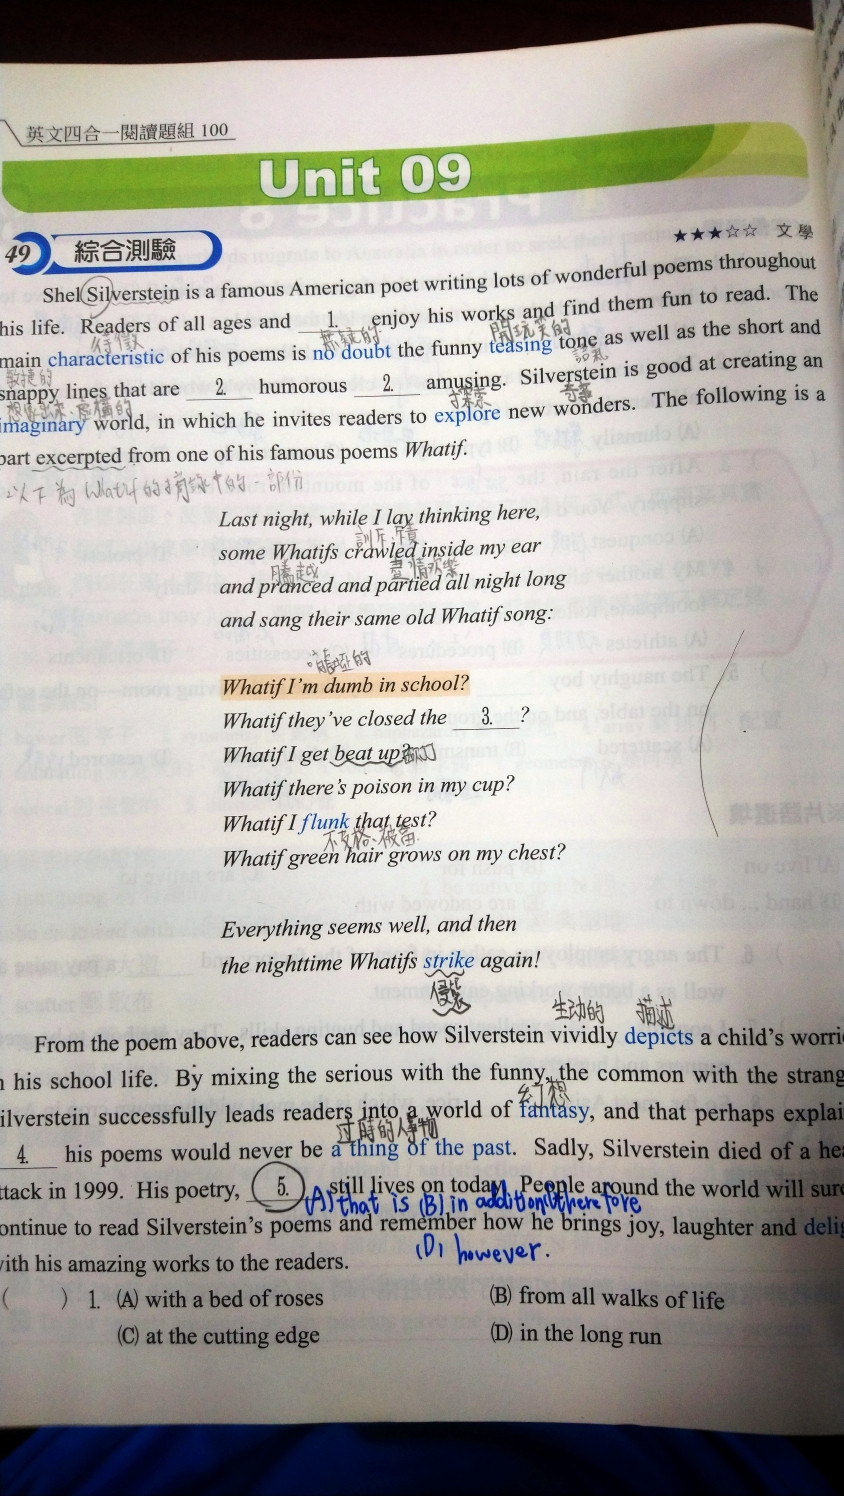 英文四合一閱讀題組 100
Unit 09
49 綜合測驗
★★★☆☆ 文學
Shel Silverstein is a famous American poet writing lots of wonderful poems throughout
his life. Readers of all ages and 1. enjoy his works and find them fun to read. The
特徵 無疑的 開玩笑的
main characteristic of his poems is no doubt the funny teasing tone as well as the short and
敏捷的 語氣
snappy lines that are 2. humorous 2. amusing. Silverstein is good at creating an
探索 奇事
imaginary world, in which he invites readers to explore new wonders. The following is a
part excerpted from one of his famous poems Whatif.
以下為 Whatif 的 一部份
Last night, while I lay thinking here,
some Whatifs crawled inside my ear
騰越 盡情歡樂
and pranced and partied all night long
and sang their same old Whatif song:
啞的
Whatif I'm dumb in school?
Whatif they've closed the 3. ?
Whatif I get beat up?
Whatif there's poison in my cup?
Whatif I flunk that test?
不及格、被當
Whatif green hair grows on my chest?
Everything seems well, and then
the nighttime Whatifs strike again!
侵襲
生动的 描述
From the poem above, readers can see how Silverstein vividly depicts a child's worri
n his school life. By mixing the serious with the funny, the common with the strang
幻想
ilverstein successfully leads readers into a world of fantasy, and that perhaps explai
過時的人事物
4. his poems would never be a thing of the past. Sadly, Silverstein died of a hea
ttack in 1999. His poetry, 5. still lives on today. People around the world will sure
(A) that is (B) in addition (C) therefore
ontinue to read Silverstein's poems and remember how he brings joy, laughter and delig
(D) however.
with his amazing works to the readers.
( ) 1. (A) with a bed of roses (B) from all walks of life
(C) at the cutting edge (D) in the long run